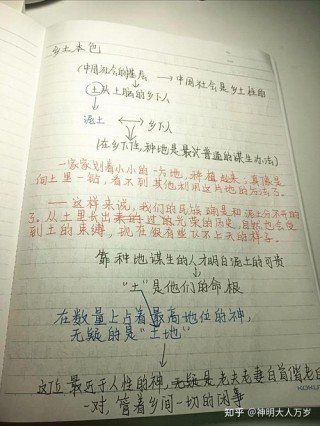 乡土本色
(中国社会的基层 → 中国社会是乡土性的
土头土脑的乡下人
泥土 ↔ 乡下人
(在乡下住,种地是最普通的谋生办法)
一家家划着小小的一方地,种植起来,真像是
向土里一钻,看不到其他利用这片地的方法了。
——这样来说,我们的民族确是和泥土分不开的
了。从土里长出过光荣的历史,自然也会受
到土的束缚,现在很有些飞不上天的样子。
靠种地谋生的人才明白泥土的可贵
"土"是他们的命根
在数量上占着最高地位的神,
无疑的是"土地"
这位最近于人性的神,老夫老妻白首偕老的
一对,管着乡间一切的闲事
知乎 @神明大人万岁